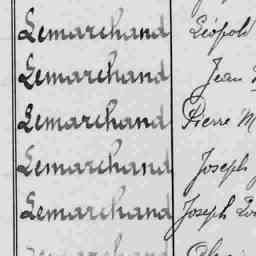 Lemarchand Léopold
Lemarchand Jean
Lemarchand Pierre M
Lemarchand Joseph
Lemarchand Joseph
Lemarchand